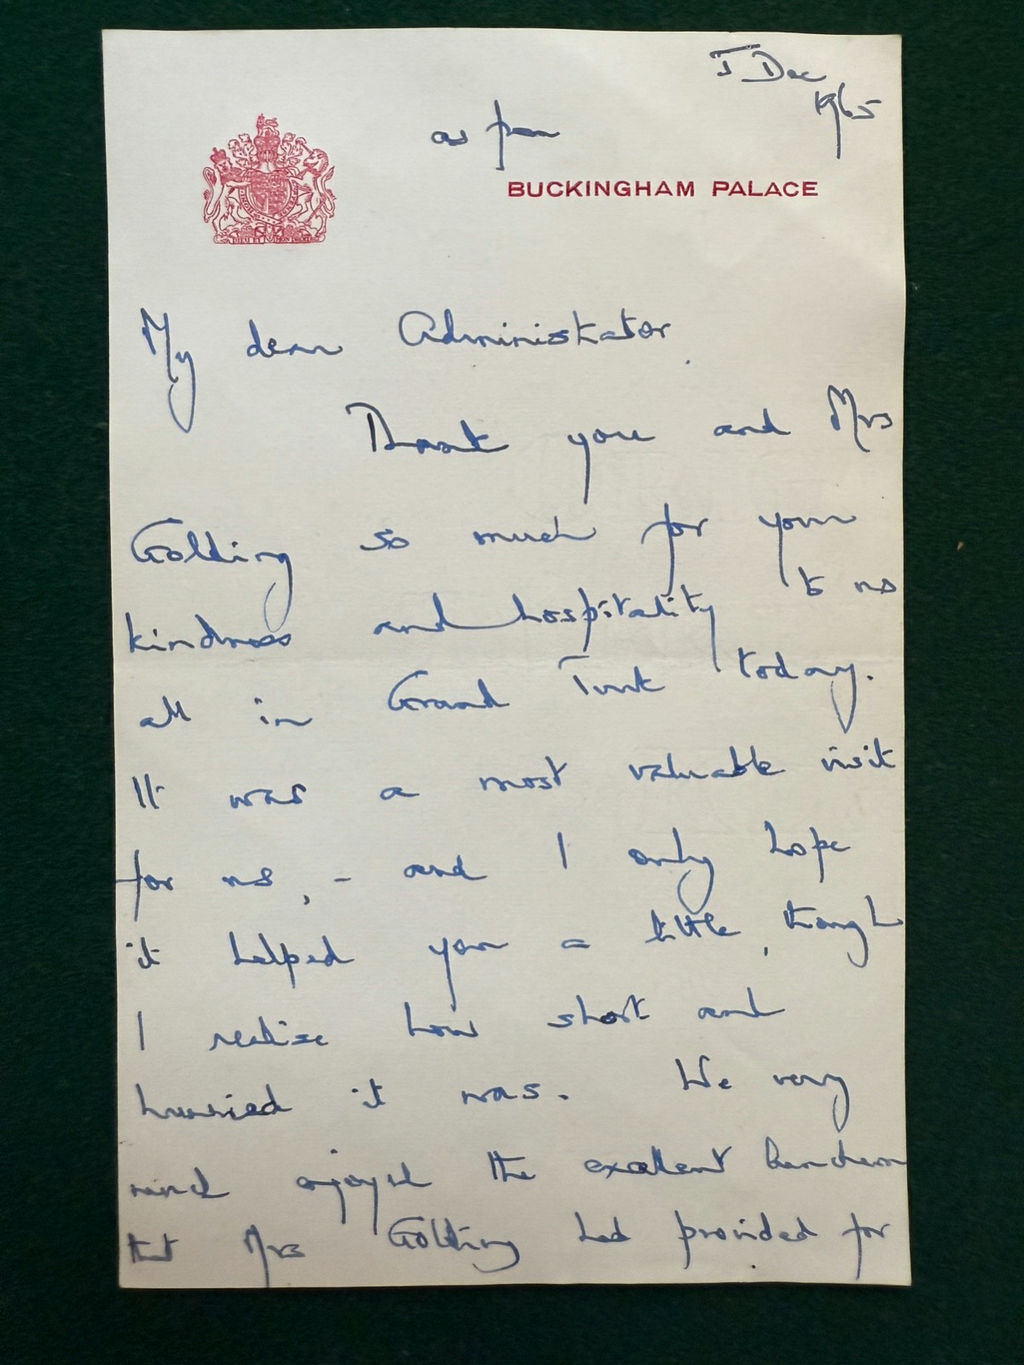 5 Dec
1965
as from
BUCKINGHAM PALACE
My dear Administrator
Thank you and Mrs
Golding so much for your
kindness and hospitality to us
all in Grand Turk today.
It was a most valuable visit
for us, - and I only hope
it helped you a little, though
I realise how short and
hurried it was. We very
much enjoyed the excellent luncheon
that Mrs Golding had provided for